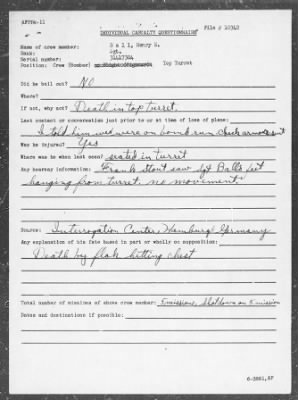 AFPPA-11
INDIVIDUAL CASUALTY QUESTIONNAIRE
File # 10342
Name of crew member: Ball, Henry E.
Rank: Sgt.
Serial number:
Position: Crew (Bomber) Top Turret
Did he bail out? No
Where?
If not, why not? Death in top turret.
Last contact or conversation just prior to or at time of loss of plane:
I told him we were on bomb run check armor suit
Was he injured? Yes
Where was he when last seen? seated in turret
Any hearsay information: Frank Stout saw Sgt Ball's feet
hanging from turret. no movement.
Source: Interrogation Center, Hamburg Germany
Any explanation of his fate based in part or wholly on supposition:
Death by flak hitting chest
Total number of missions of above crew member: missions, Shot down on mission
Dates and destinations if possible:
6-3861, AF